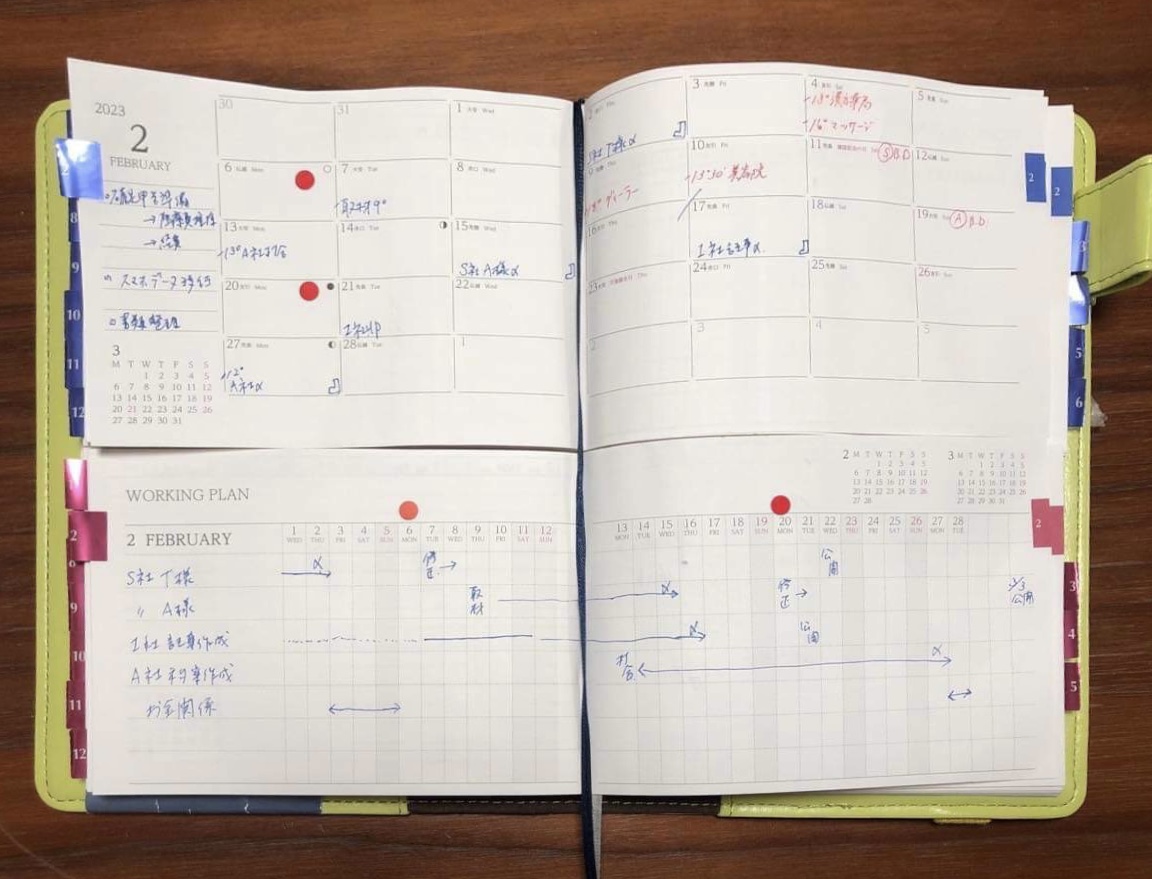 2023
2
FEBRUARY
30
31
1 Wed
3 Fri
4 Sat
5 Sun
-16° マッサージ
6 Mon
7 Tue
8 Wed
9
10 Fri
11
12
取材9°
ディーラー
-13°30' 美容院
スマホデータ移行
書類整理
13
14 Tue
15 Wed
16
17
18
19
S社 A様〆
I社記事〆
20 Mon
21 Tue
22 Wed
23
24 Fri
25 Sat
26 Sun
27 Mon
28 Tue
1
2
3
4
5
A社〆
3
M T W T F S S
1 2 3 4 5
6 7 8 9 10 11 12
13 14 15 16 17 18 19
20 21 22 23 24 25 26
27 28 29 30 31
2
M T W T F S S
1 2 3 4 5
6 7 8 9 10 11 12
13 14 15 16 17 18 19
20 21 22 23 24 25 26
27 28
3
M T W T F S S
1 2 3 4 5
6 7 8 9 10 11 12
13 14 15 16 17 18 19
20 21 22 23 24 25 26
27 28 29 30 31
WORKING PLAN
2 FEBRUARY
1 2 3 4 5 6 7 8 9 10 11 12 13 14 15 16 17 18 19 20 21 22 23 24 25 26 27 28
WED THU FRI SAT SUN MON TUE WED THU FRI SAT SUN MON TUE WED THU FRI SAT SUN MON TUE WED THU FRI SAT SUN MON TUE
S社 T様 〆 修正→ 公開
〃 A様 取材 〆 修正→ 公開
I社 記事作成 〆 公開
A社 記事作成 打合 〆
お金関係
2
8
9
10
11
12
2
9
10
11
12
2
2
3
5
6
2
3
4
5